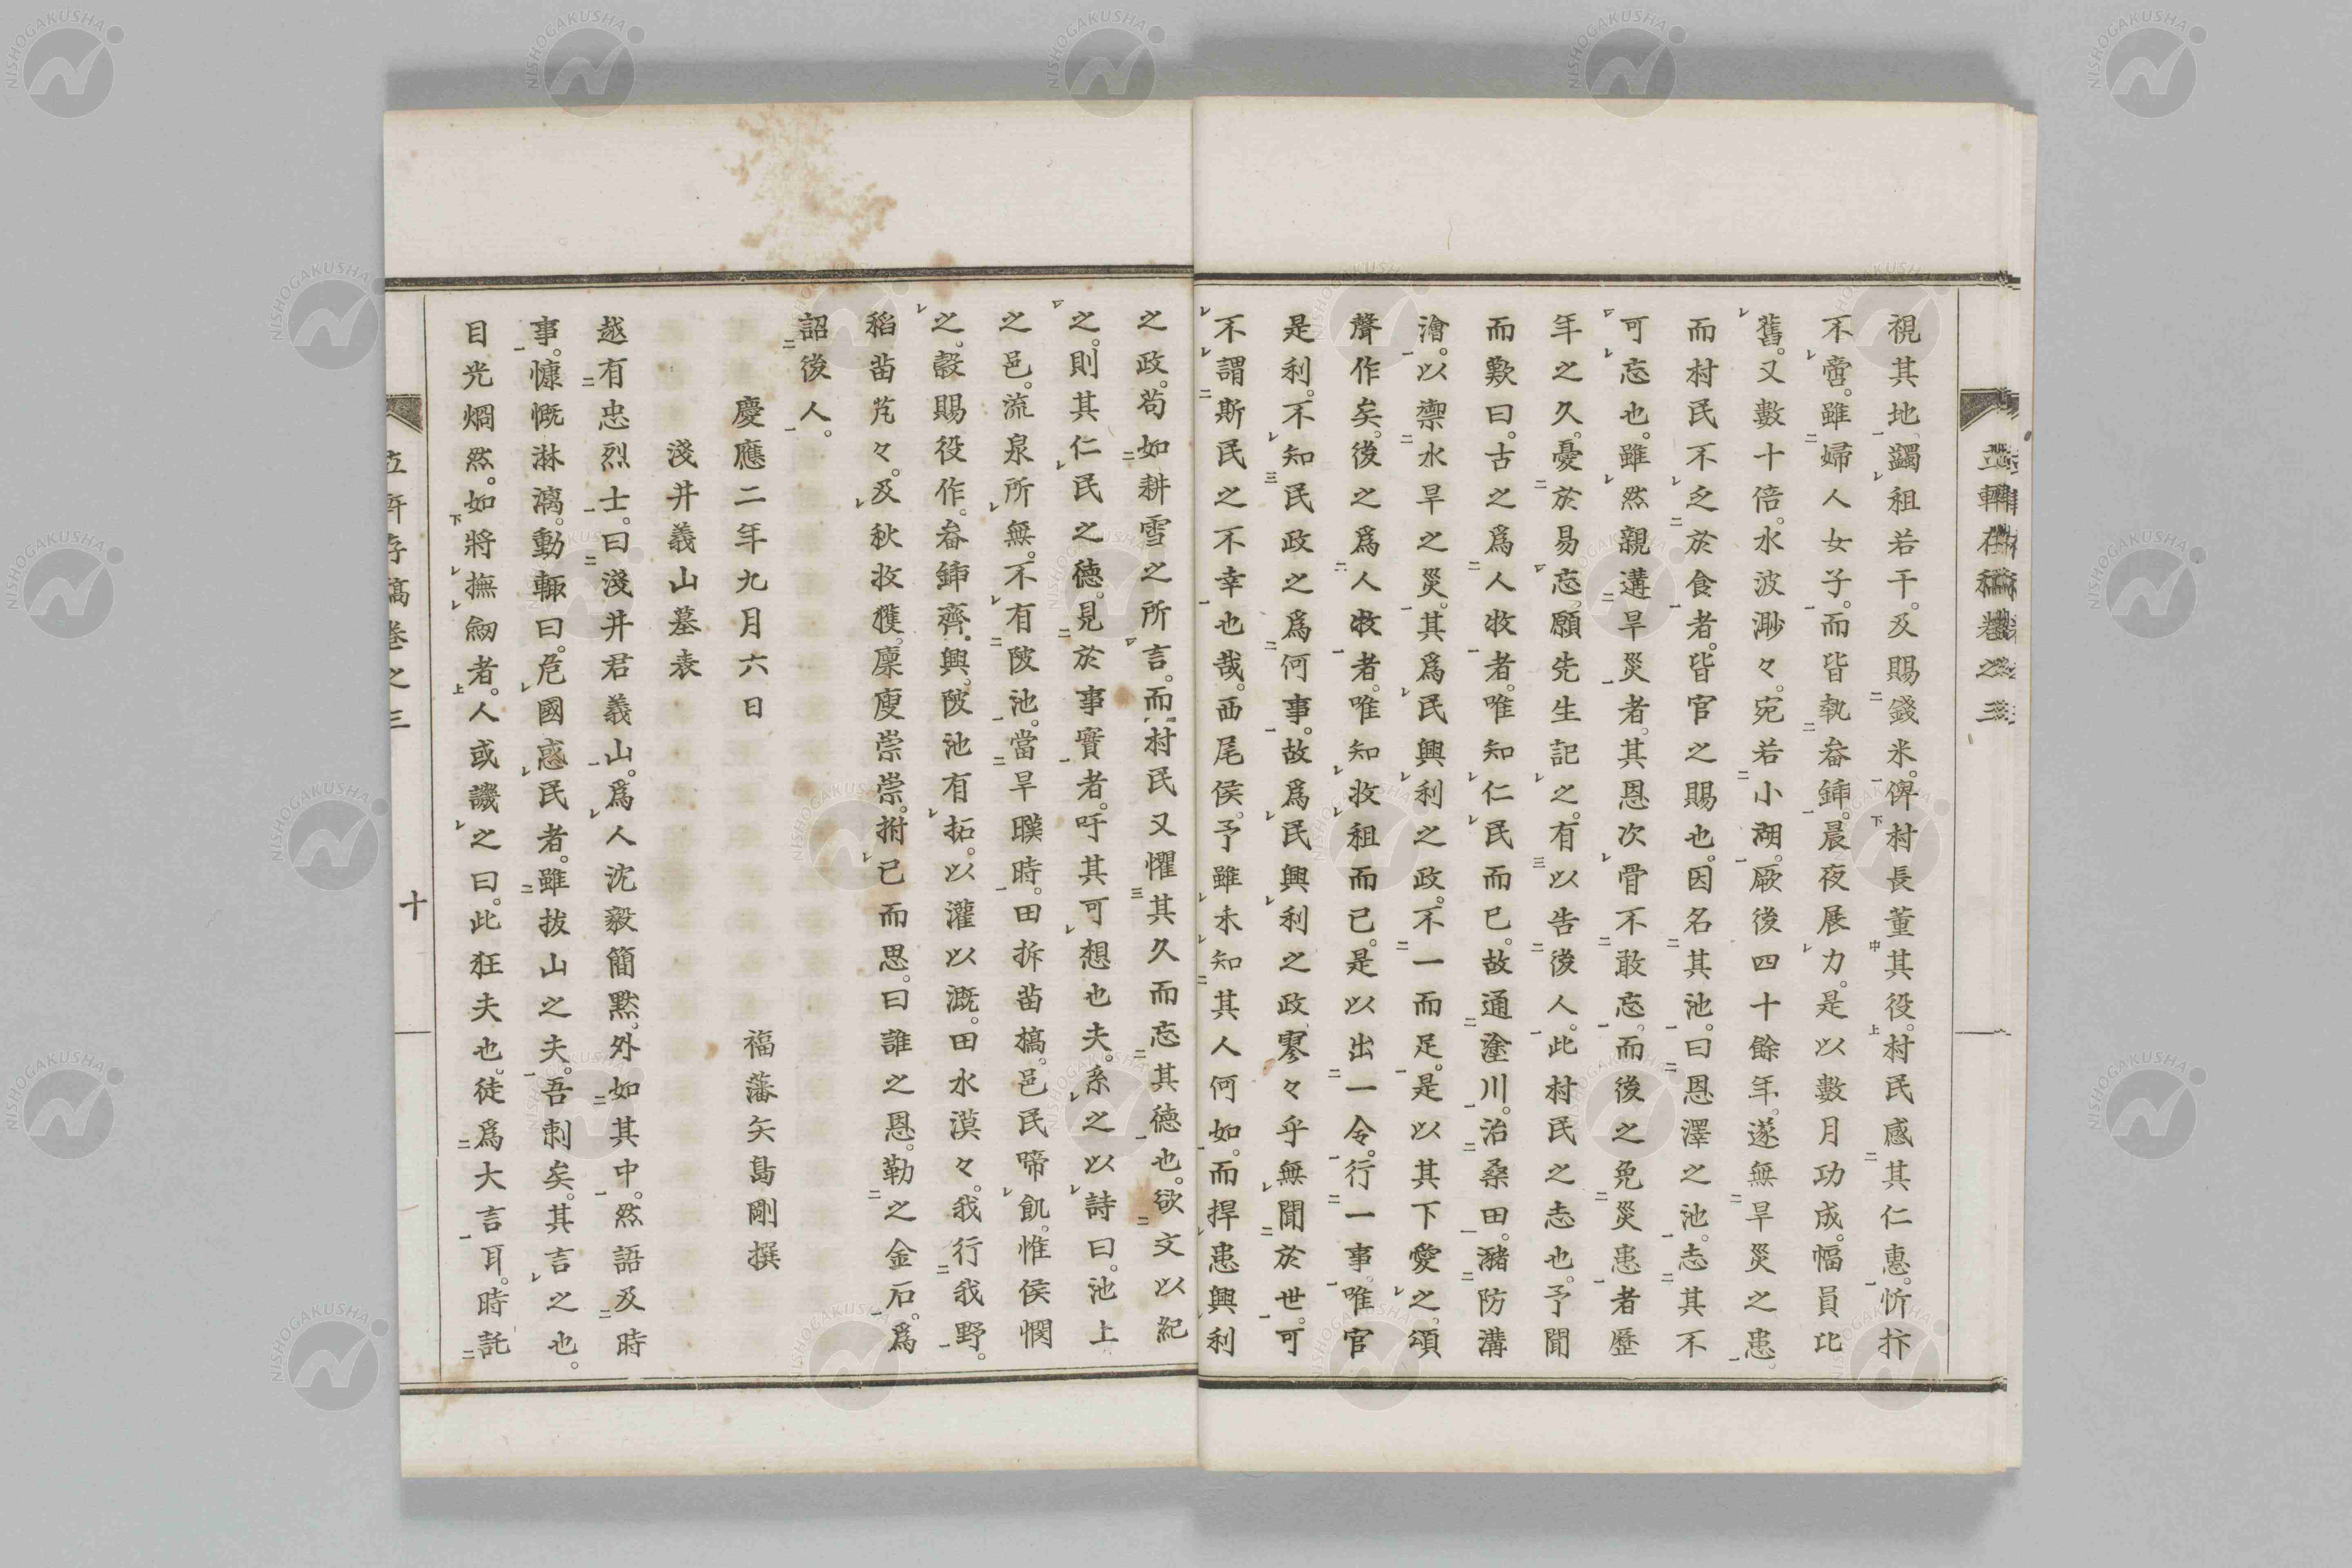 視其地蠲租若干。及賜錢米。俾村長董其役。村民感其仁惠。忻抃
不啻。雖婦人女子。而皆執畚鍤。晨夜展力。是以數月功成。幅員比
舊。又數十倍。水波渺々。宛若小湖。厥後四十餘年。遂無旱災之患。
而村民不乏於食者。皆官之賜也。因名其池。曰恩澤之池。志其不
可忘也。雖然親遘旱災者。其恩次骨不敢忘。而後之免災患者歷
年之久。憂於易忘。願先生記之。有以告後人。此村民之志也。予聞
而歎曰。古之爲人牧者。唯知仁民而已。故通塗川。治桑田。瀦防溝
澮。以禦水旱之災。其爲民興利之政。不一而足。是以其下愛之。頌
聲作矣。後之爲人牧者。唯知收租而已。是以出一令。行一事。唯官
是利。不知民政之爲何事。故爲民興利之政。寥々乎無聞於世。可
不謂斯民之不幸也哉。西尾侯。予雖未知其人何如。而捍患興利
之政。苟如耕雪之所言。而村民又懼其久而忘其德也。欲文以紀
之。則其仁民之德。見於事實者。吁其可想也夫。系之以詩曰。池上
之邑。流泉所無。不有陂池。當旱暵時。田拆苗槁。邑民啼飢。惟侯憫
之。穀賜役作。畚鍤齊興。陂池有拓。以灌以漑。田水漠々。我行我野。
稻苗芃々。及秋收穫。廩庾崇崇。拊已而思。曰誰之恩。勒之金石。爲
詔後人。
慶應二年九月六日
福藩矢島剛撰
淺井義山墓表
越有忠烈士。曰淺井君義山。爲人沈毅簡默。外如其中。然語及時
事。慷慨淋漓。動輙曰。危國惑民者。雖拔山之夫。吾刺矣。其言之也。
目光烱然。如將撫劒者。人或譏之曰。此狂夫也。徒爲大言耳。時託
立軒存稿卷之三
十